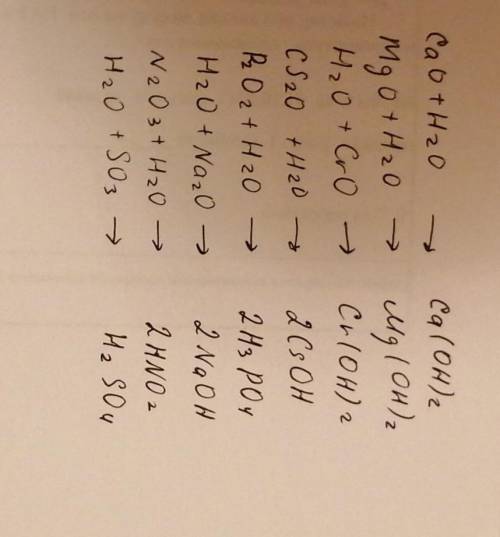 CaO + H2O → Ca(OH)2
MgO + H2O → Mg(OH)2
H2O + CrO → Cr(OH)2
CS2O + H2O → 2CsOH
P2O2 + H2O → 2H3PO4
H2O + Na2O → 2NaOH
N2O3 + H2O → 2HNO2
H2O + SO3 → H2SO4